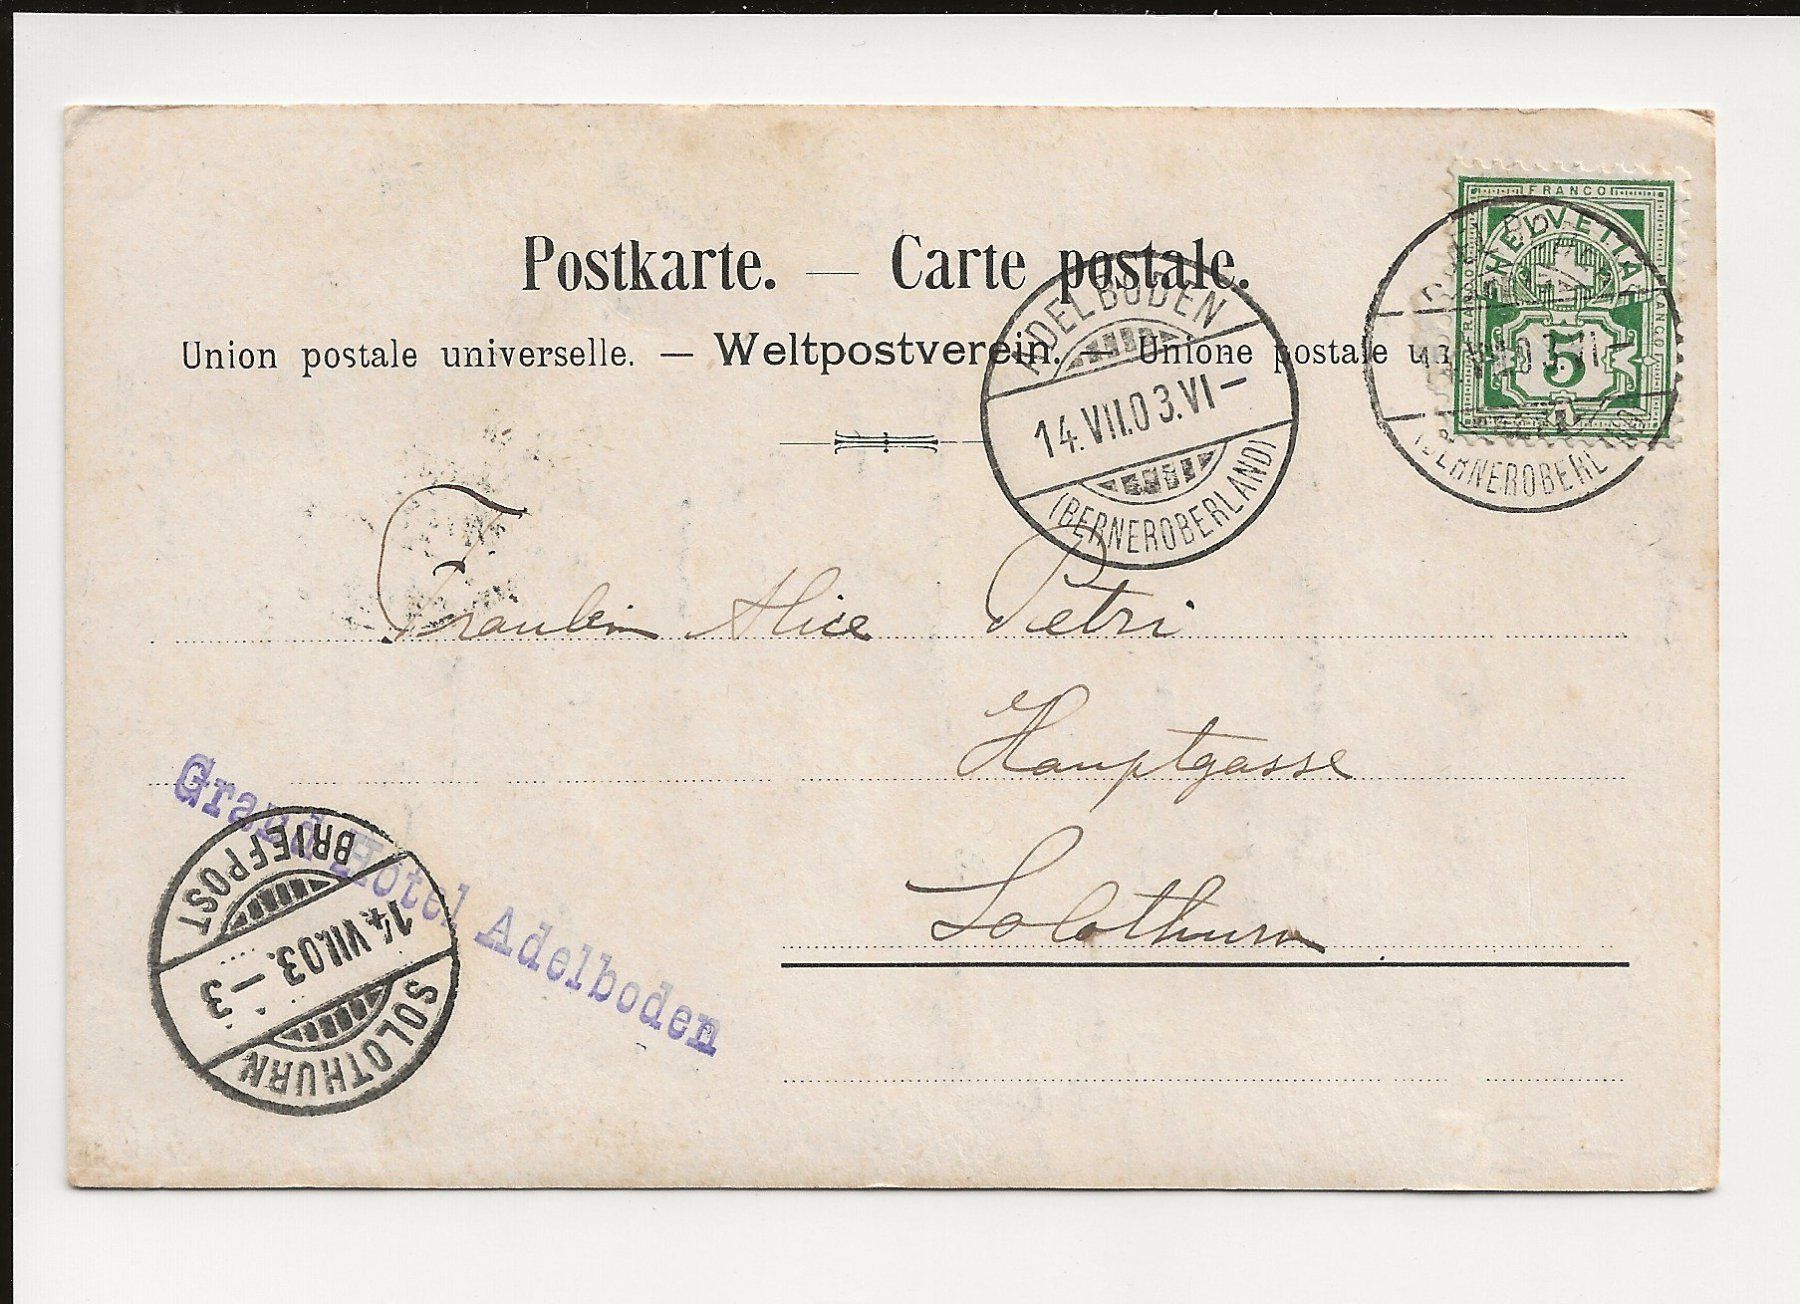 Postkarte. — Carte postale.
Union postale universelle. — Weltpostverein. — Unione postale
FRANCO
HELVETIA
FRANCO
5
ADELBODEN
14.VII.03.VI–
(BERNEROBERLAND)
Fräulein Alice Petri
Hauptgasse
Solothurn
Grand Hôtel Adelboden
BRIEFPOST
14.VII.03.–3
SOLOTHURN